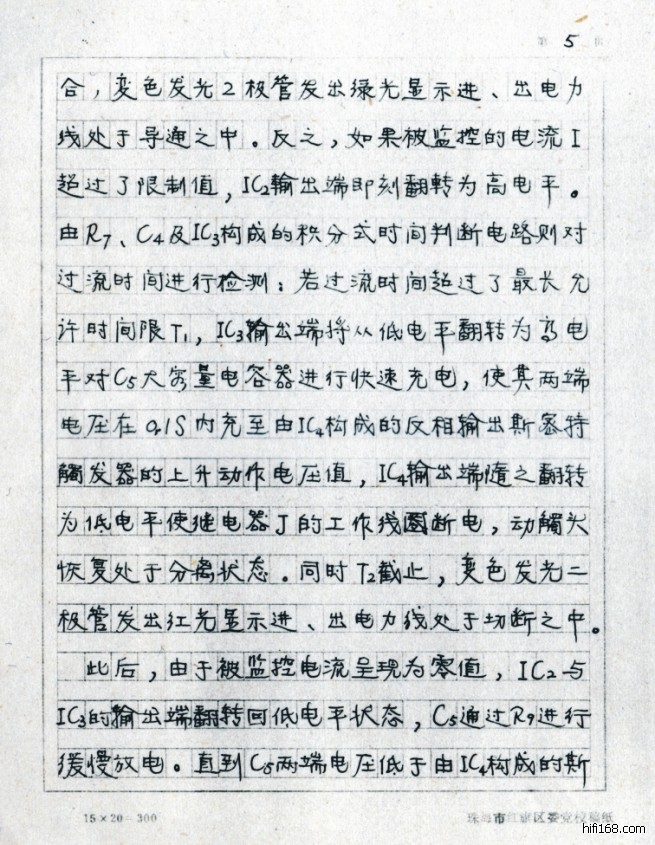 第 5 页
合，变色发光2极管发出绿光显示进、出电力
线处于导通之中。反之，如果被监控的电流I
超过了限制值，IC2输出端即刻翻转为高电平。
由R7、C4及IC3构成的积分式时间判断电路则对
过流时间进行检测：若过流时间超过了最长允
许时间限T1，IC3输出端将从低电平翻转为高电
平对C5大容量电容器进行快速充电，使其两端
电压在0.1S内充至由IC4构成的反相输出斯密特
觸发器的上升动作电压值，IC4输出端随之翻转
为低电平使继电器J的工作线圈断电，动觸头
恢复处于分离状态。同时T2截止，变色发光二
极管发出红光显示进、出电力线处于切断之中。
此后，由于被监控电流呈现为零值，IC2与
IC3的输出端翻转回低电平状态，C5通过R9进行
缓慢放电。直到C5两端电压低于由IC4构成的斯
15×20=300 珠海市红旗区委党校稿纸
hifi168.com